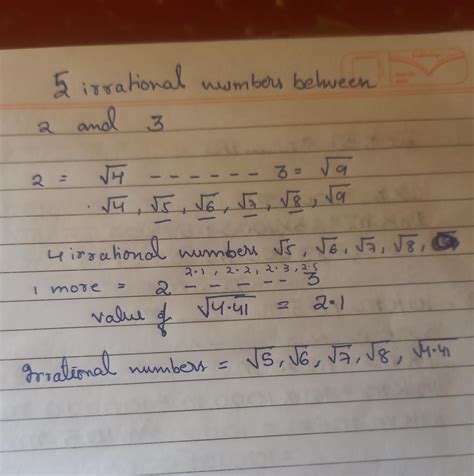 5 irrational numbers between
2 and 3
2 = √4 - - - - - - 3 = √9
√4, √5, √6, √7, √8, √9
4 irrational numbers √5, √6, √7, √8,
2.1, 2.2, 2.3, 2.5
1 more = 2 - - - - - 3
value of √4.41 = 2.1
Irrational numbers = √5, √6, √7, √8, √4.41